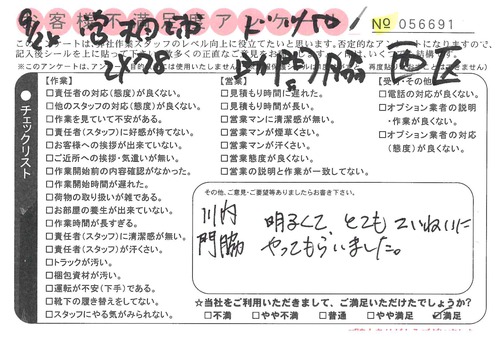 お客様不満足アンケート
No 056691
このアンケートは、弊社作業スタッフのレベル向上に役立てたいと思います。否定的なアンケートになりますので、
【作業】
□責任者の対応(態度)が良くない。
□他のスタッフの対応(態度)が良くない。
□作業を見ていて不安がある。
□責任者(スタッフ)に好感が持てない。
□お客様への挨拶が出来ていない。
□ご近所への挨拶・気遣いが無い。
□作業開始前の内容確認がなかった。
□作業開始時間が遅れた。
□荷物の取り扱いが雑である。
□お部屋の養生が出来ていない。
□作業時間が長すぎる。
□責任者(スタッフ)に清潔感が無い。
□責任者(スタッフ)が汗くさい。
□トラックが汚い。
□梱包資材が汚い。
□運転が不安(下手)である。
□靴下の履き替えをしてない。
□スタッフにやる気がみられない。
【営業】
□見積もり時間に遅れた。
□見積もり時間が長い。
□営業マンに清潔感が無い。
□営業マンが煙草くさい。
□営業マンが汗くさい。
□営業態度が良くない。
□営業の説明と作業が一致してない。
□電話の対応が良くない。
□オプション業者の説明
・作業が良くない。
□オプション業者の対応
(態度)が良くない。
チェックリスト
その他、ご意見・ご要望等ありましたらお書き下さい。
川内 明るくて、とてもていねいに
門脇 やってもらいました。
☆当社をご利用いただきまして、ご満足いただけたでしょうか?
□不満 □やや不満 □普通 □やや満足 ☑満足